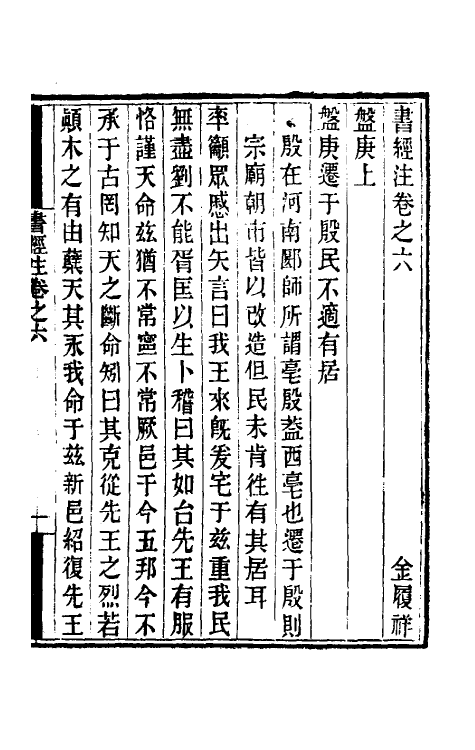 書經注卷之六 金履祥
盤庚上
盤庚遷于殷民不適有居
殷在河南郾師所謂亳殷葢西亳也遷于殷則
宗廟朝市皆以改造但民未肯徃有其居耳
率籲眾慼出矢言曰我王來旣爰宅于茲重我民
無盡劉不能胥匡以生卜稽曰其如台先王有服
恪謹天命茲猶不常寧不常厥邑于今五邦今不
承于古罔知天之斷命矧曰其克從先王之烈若
顚木之有由蘗天其永我命于茲新邑紹復先王
書經注卷之六